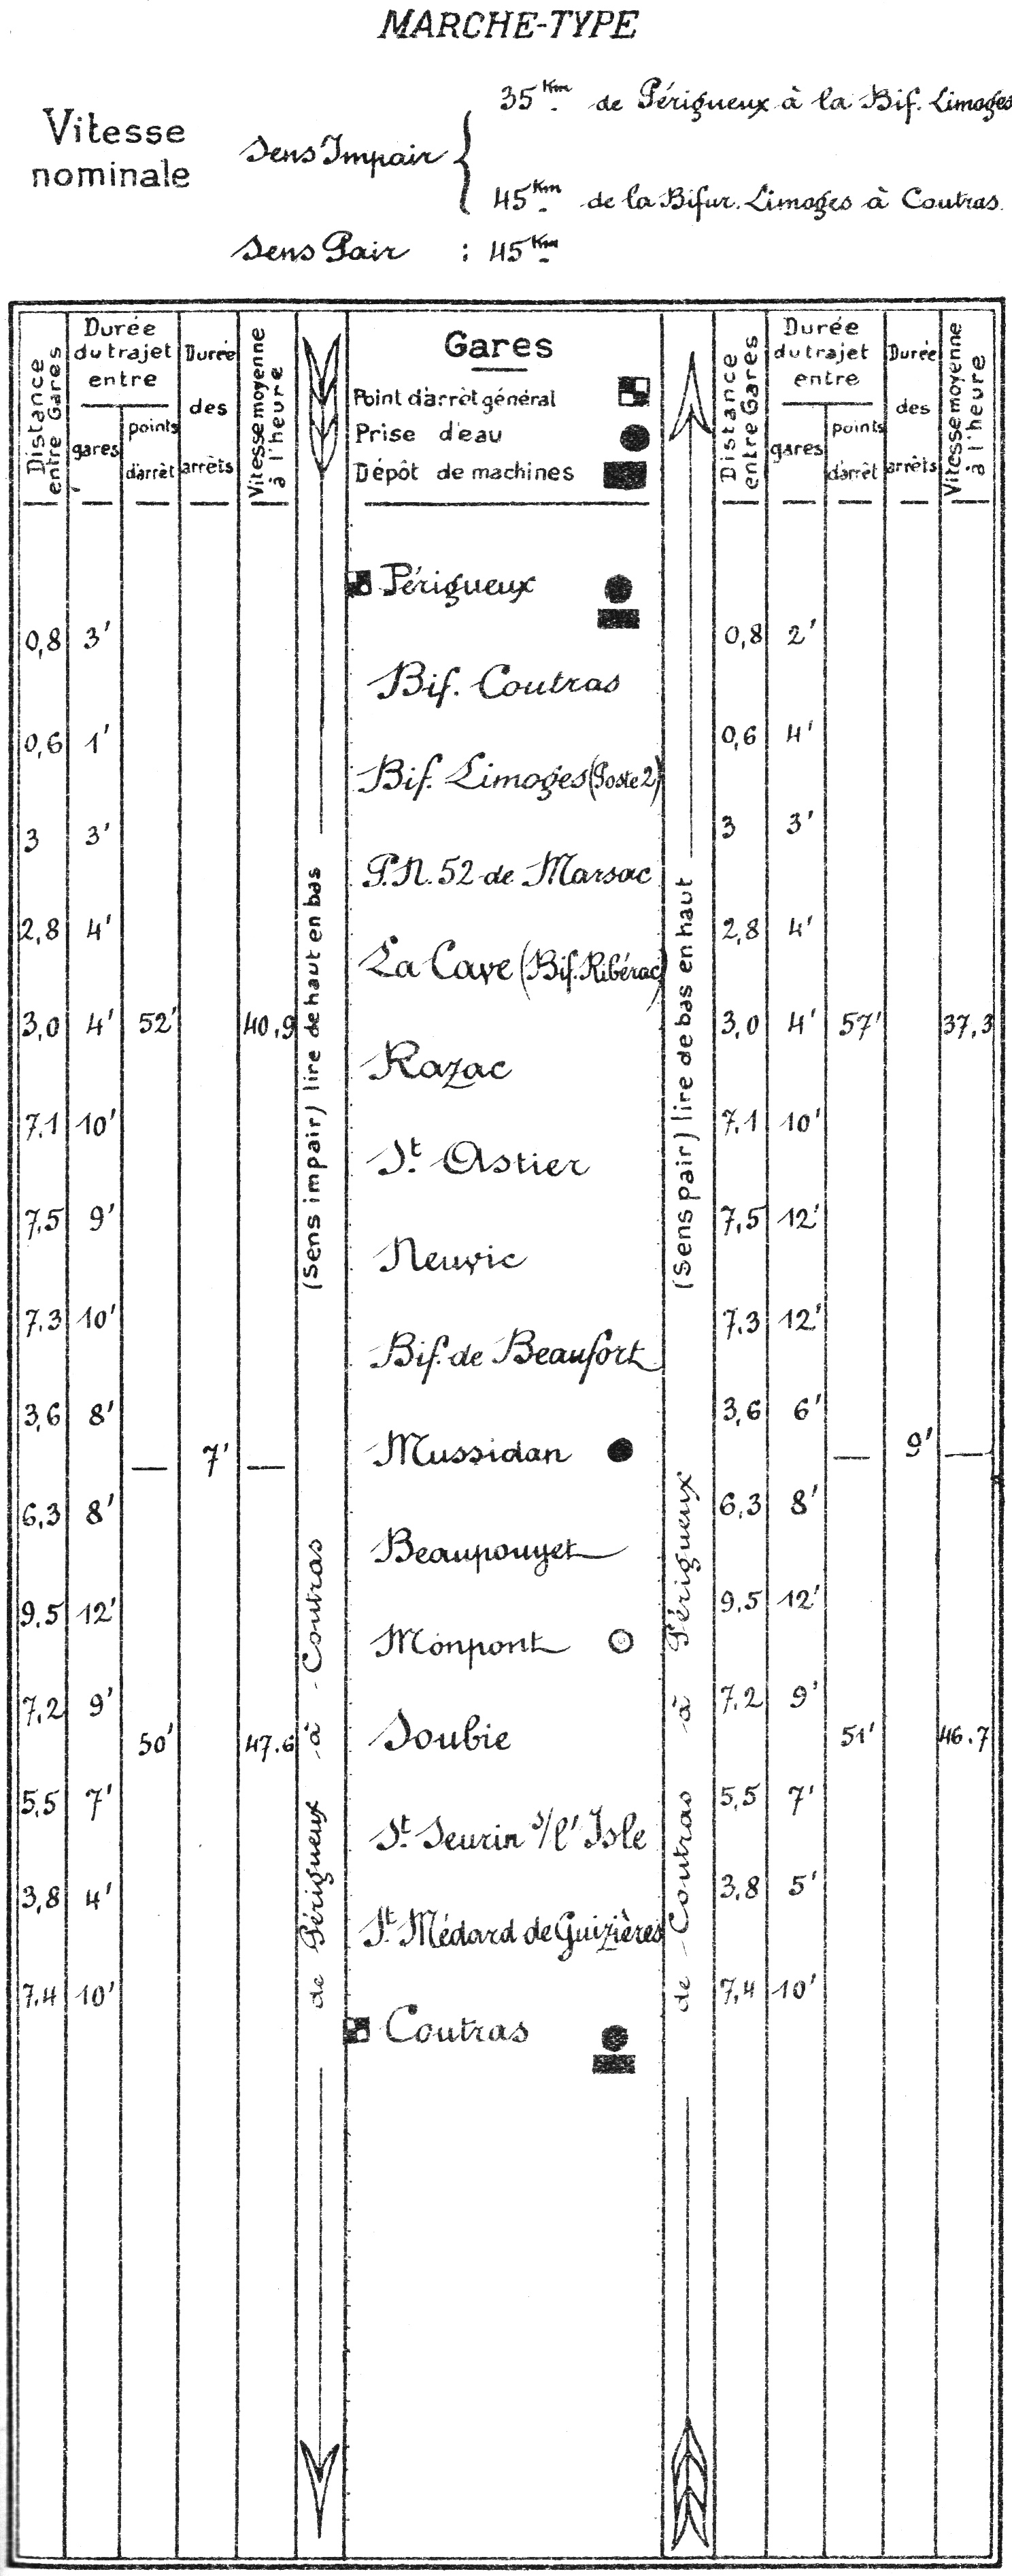 MARCHE-TYPE
Vitesse nominale
Sens Impair { 35 Km de Périgueux à la Bif. Limoges
45 Km de la Bifur. Limoges à Coutras.
Sens Pair : 45 Km
Distance entre Gares
Durée du trajet entre
gares
points d'arrêt
Durée des arrêts
Vitesse moyenne à l'heure
Gares
Point d'arrêt général
Prise d'eau
Dépôt de machines
Distance entre Gares
Durée du trajet entre
gares
points d'arrêt
Durée des arrêts
Vitesse moyenne à l'heure
Périgueux
0,8 3' 0,8 2'
Bif. Coutras
0,6 1' 0,6 4'
Bif. Limoges (Poste 2)
3 3' 3 3'
P.N. 52 de Marsac
2,8 4' 2,8 4'
La Cave (Bif. Ribérac)
3,0 4' 52' 40,9 3,0 4' 57' 37,3
Razac
7.1 10' 7.1 10'
St. Astier
7.5 9' 7,5 12'
Neuvic
7.3 10' 7.3 12'
Bif. de Beaufort
3,6 8' 3,6 6'
Mussidan
— 7' — — 9' —
6,3 8' 6,3 8'
Beaupouyet
9.5 12' 9,5 12'
Monpont
7,2 9' 7.2 9'
Soubie
50' 47.6 51' 46.7
5,5 7' 5,5 7'
St. Seurin s/l'Isle
3,8 4' 3,8 5'
St. Médard de Guizières
7.4 10' 7,4 10'
Coutras
(Sens impair) lire de haut en bas
de Périgueux à Coutras
(Sens pair) lire de bas en haut
de Coutras à Périgueux